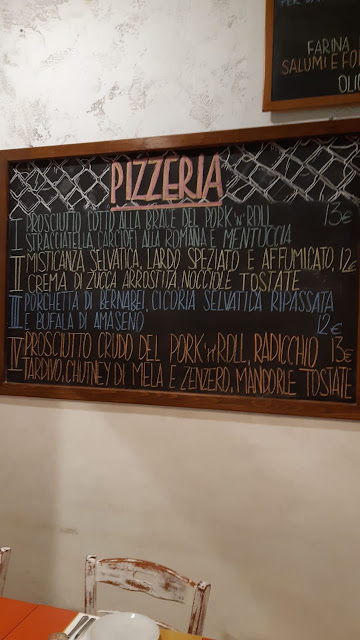 PER
FARINA
SALUMI E FO
OLIO
PIZZERIA
I PROSCIUTTO COTTO ALLA BRACE DEL PORK 'n' ROLL 13€
STRACCIATELLA, CARCIOFI ALLA ROMANA E MENTUCCIA
II MISTICANZA SELVATICA, LARDO SPEZIATO E AFFUMICATO, 12€
CREMA DI ZUCCA ARROSTITA NOCCIOLE TOSTATE
III PORCHETTA DI BERNABEI, CICORIA SELVATICA RIPASSATA
E BUFALA DI AMASENO 12€
IV PROSCIUTTO CRUDO DEL PORK 'n' ROLL, RADICCHIO 13€
TARDIVO, CHUTNEY DI MELA E ZENZERO, MANDORLE TOSTATE